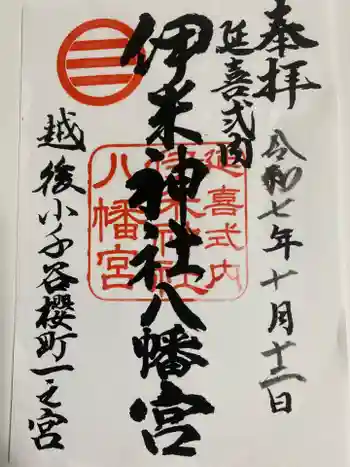 奉拝
延喜式内
伊米神社八幡宮
令和七年十月十二日
越後小千谷櫻町一之宮
延喜式内
伊米神社
八幡宮